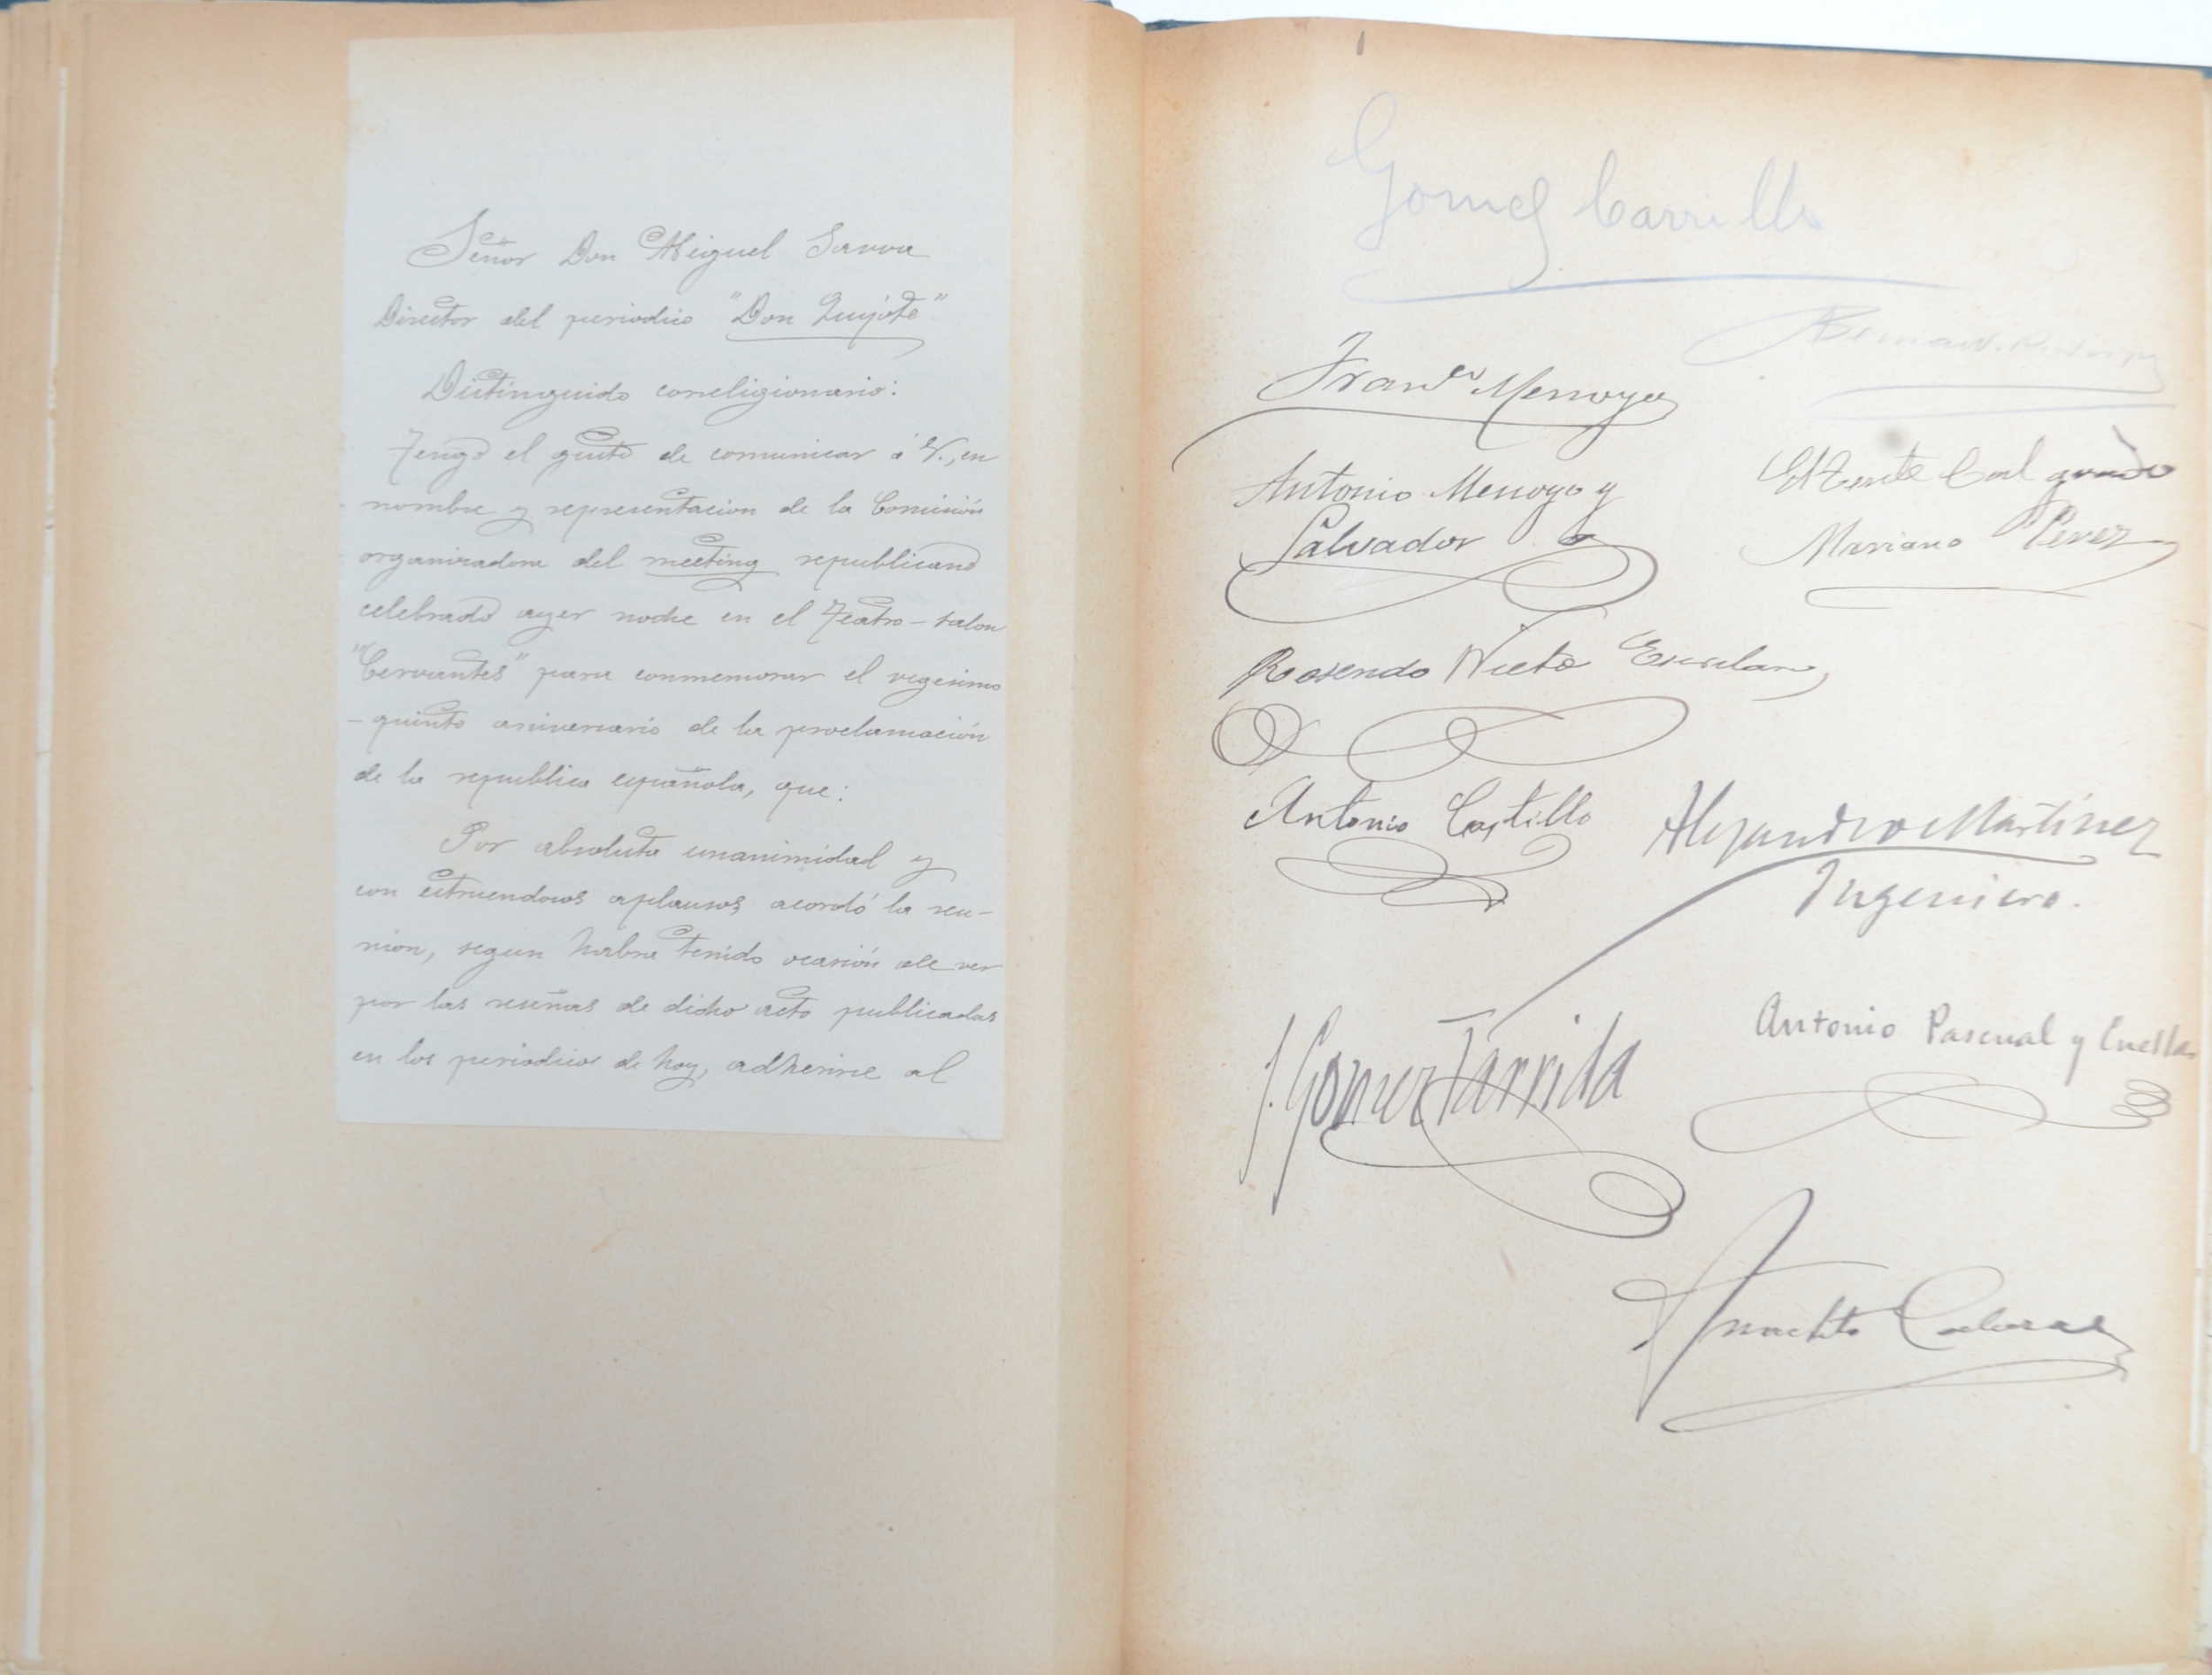 Señor Don Miguel Sawa
Director del periodico "Don Quijote"
Distinguido correligionario:
Tengo el gusto de comunicar á V., en
nombre y representacion de la Comisión
organizadora del meeting republicano
celebrado ayer noche en el Teatro-salon
"Cervantes" para conmemorar el vigesimo
-quinto aniversario de la proclamación
de la republica española, que:
Por absoluta unanimidad y
con estruendosos aplausos acordó la reu-
nión, segun habra tenido ocasión de ver
por las reseñas de dicho acto publicadas
en los periodicos de hoy, adherirse al
Gomez Carrillo
Franco Menoyo
Antonio Menoyo y
Salvador
El Tente Corl gradº
Mariano Perez
Rosendo Nieto
Antonio Castillo
Alejandro Martinez
Ingeniero.
J. Gomez Tarrida
Antonio Pascual y Cuellar